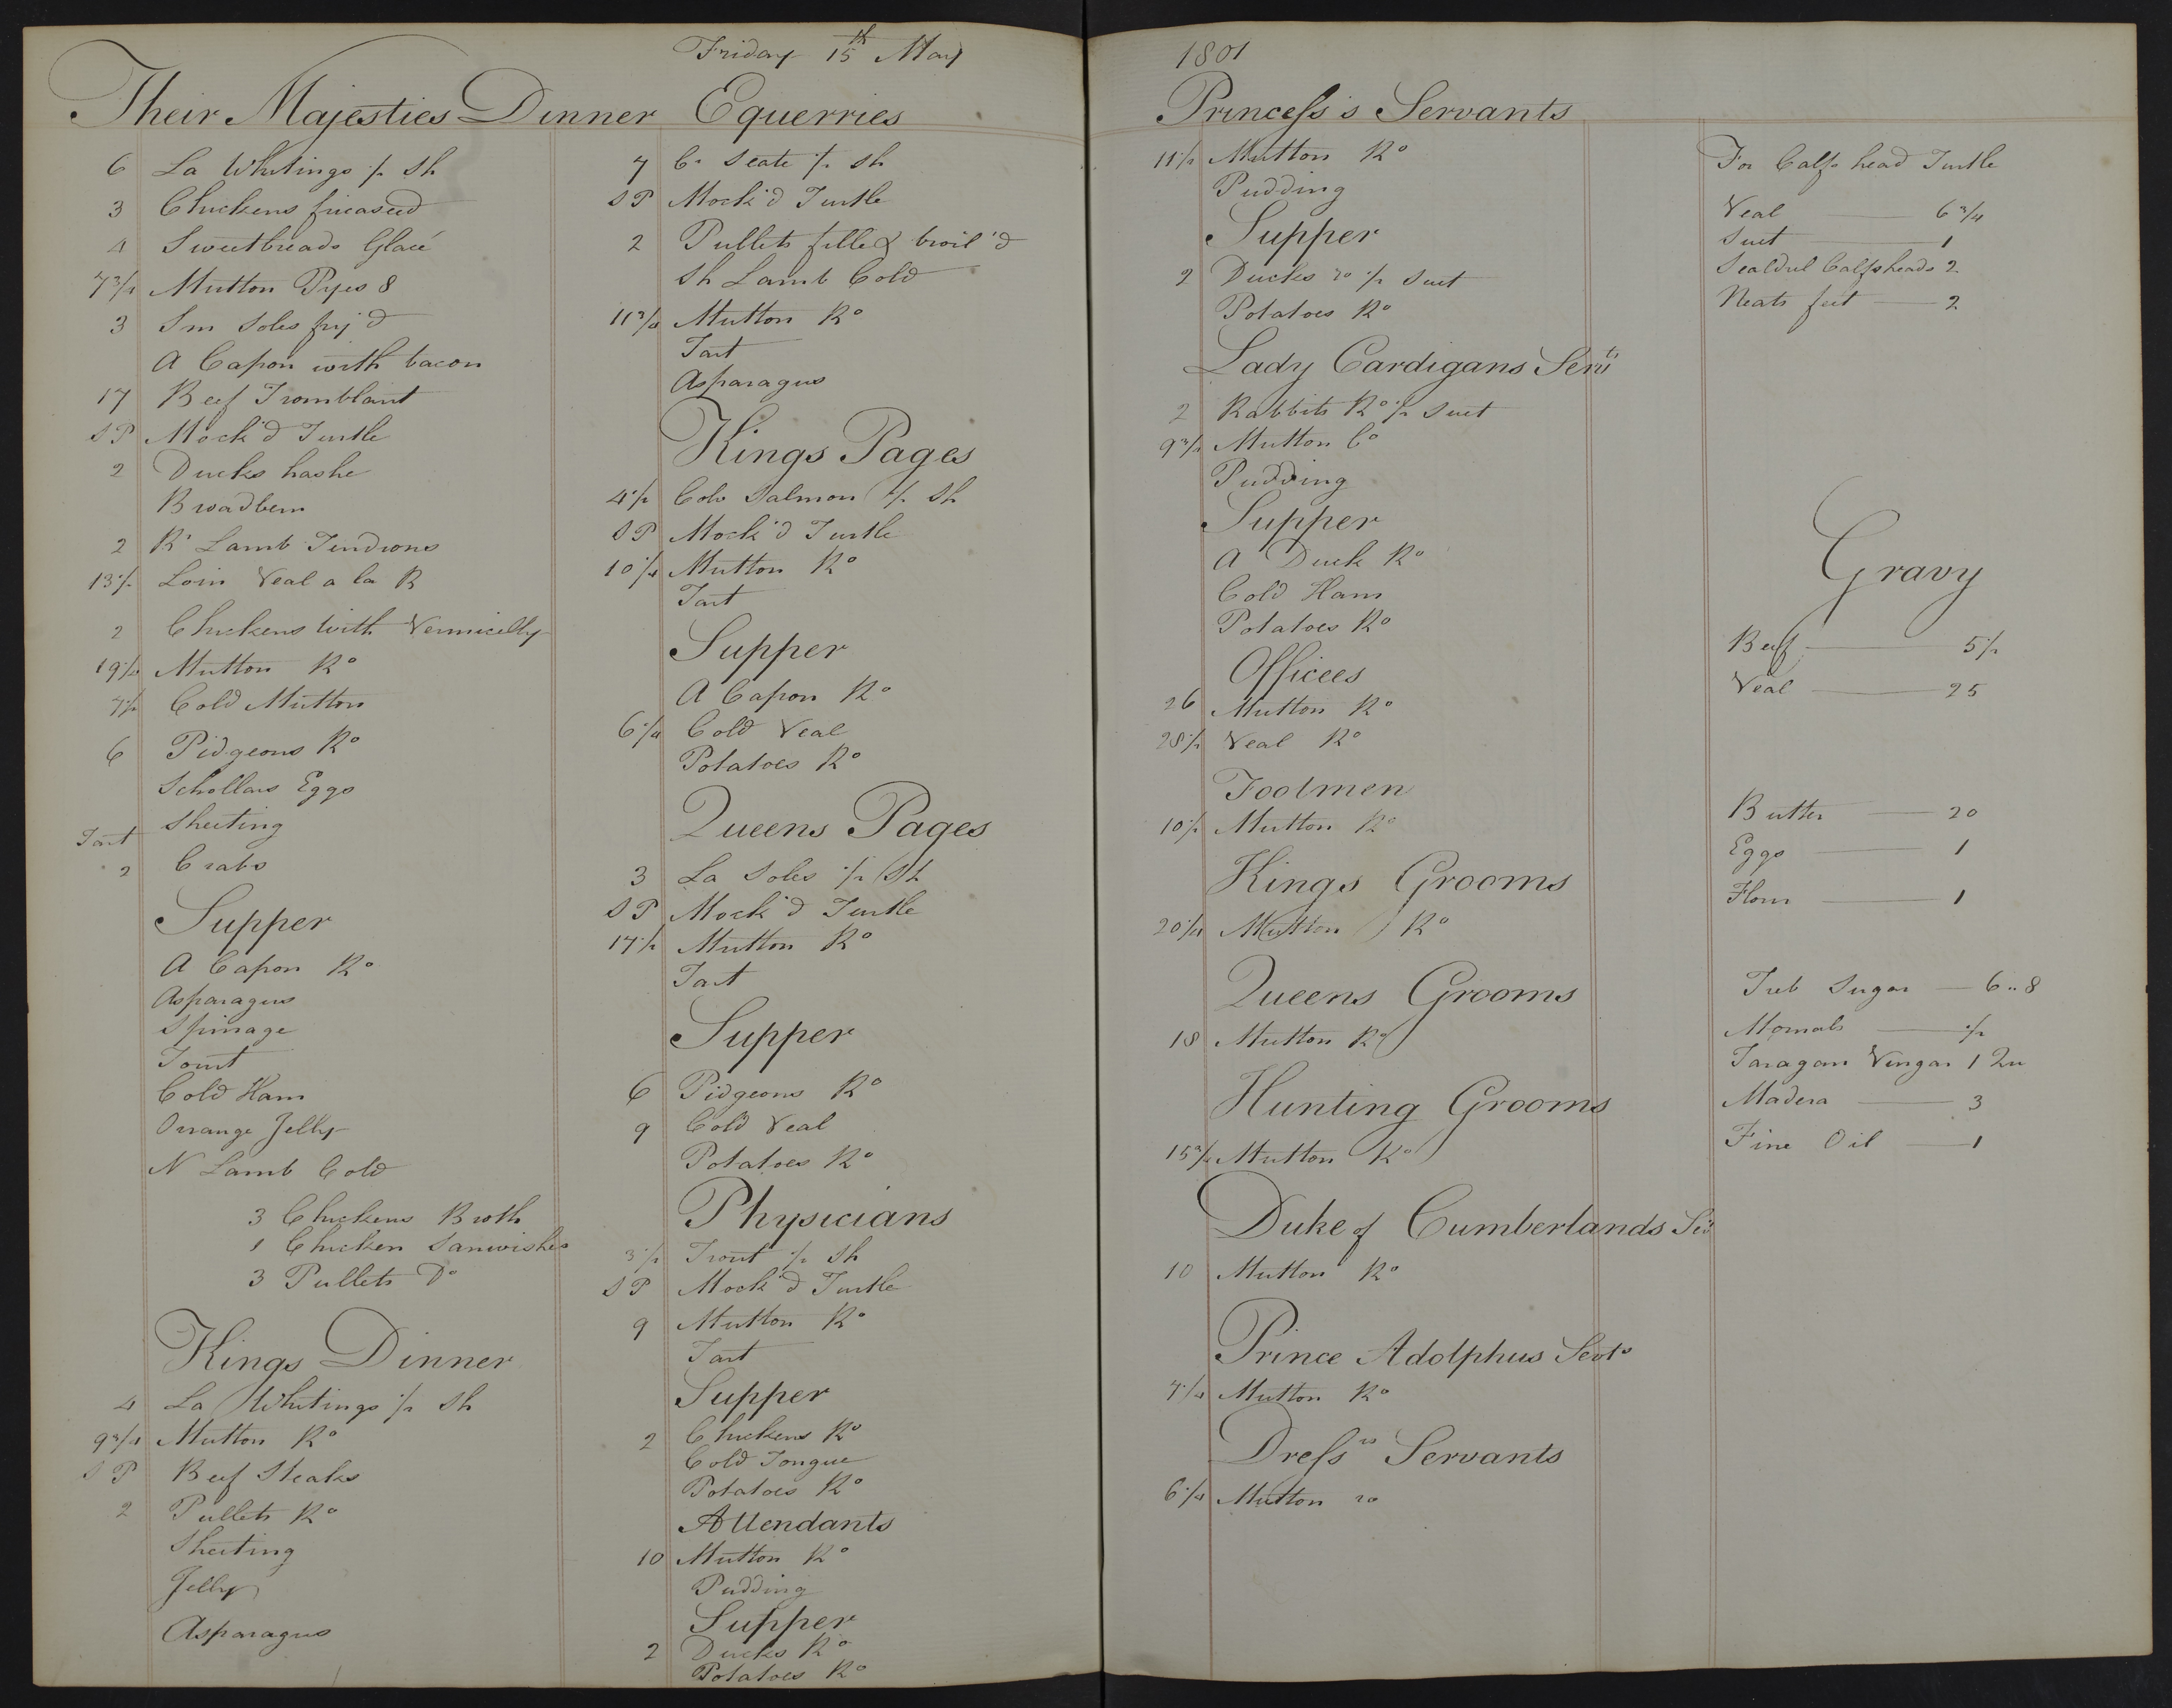 Friday 15th May
Their Majesties Dinner
6 La Whitings ½ Sh
3 Chickens fricaseed
4 Sweetbreads Glacé
7¾ Mutton Pyes 8
3 Sm Soles fry'd
A Capon with bacon
17 Beef Tromblant
SP Mock'd Turtle
2 Ducks hashe
Broadbern
2 Rs Lamb Tendrons
13½ Loin Veal a la B
2 Chickens with Vermicelly
19¼ Mutton Ro
7½ Cold Mutton
6 Pidgeons Ro
Schollars Eggs
Sheeting
Tart
2 Crabs
Supper
A Capon Ro
Asparagus
Spinage
Tourt
Cold Ham
Orrange Jelly
N Lamb Cold
3 Chickens Broth
1 Chicken Sanwishes
3 Pullets Do
Kings Dinner
4 La Whitings ½ Sh
9¾ Mutton Ro
SP Beef Steaks
2 Pullets Ro
Sheeting
Jelly
Asparagus
Equerries
7 Cr Scate ½ Sh
SP Mock'd Turtle
2 Pullets fille & broil'd
Sh Lamb Cold
11¾ Mutton Ro
Tart
Asparagus
Kings Pages
4½ Salmon ½ Sh
SP Mock'd Turtle
10¼ Mutton Ro
Tart
Supper
A Capon Ro
6¼ Cold Veal
Potatoes Ro
Queens Pages
3 La Soles ½ Sh
SP Mock'd Turtle
17½ Mutton Ro
Tart
Supper
6 Pidgeons Ro
9 Cold Veal
Potatoes Ro
Physicians
3½ Trout ½ Sh
SP Mock'd Turtle
9 Mutton Ro
Tart
Supper
2 Chickens Ro
Cold Tongue
Potatoes Ro
Attendants
10 Mutton Ro
Pudding
Supper
2 Ducks Ro
Potatoes Ro
1801
Princess's Servants
11½ Mutton Ro
Pudding
Supper
2 Ducks ro ½ Suet
Potatoes Ro
Lady Cardigans Servts
2 Rabbits Ro ½ Suet
9¾ Mutton Co
Pudding
Supper
A Duck Ro
Cold Ham
Potatoes Ro
Offices
26 Mutton Ro
28½ Veal Ro
Footmen
10½ Mutton Ro
Kings Grooms
20¼ Mutton Ro
Queens Grooms
18 Mutton Ro
Hunting Grooms
15¾ Mutton Ro
Duke of Cumberlands
10 Mutton Ro
Prince Adolphus Servts
7¼ Mutton Ro
Dressrs Servants
6¼ Mutton ro
For Calfs head Turtle
Veal 6¾
Suet 1
Scalded Calfsheads 2
Neats feet 2
Gravy
Beef 5½
Veal 25
Butter 20
Eggs 1
Flour 1
Treb Sugar 6..8
Mornals ½
Taragon Vingar 1 Qu
Madera 3
Fine Oil 1